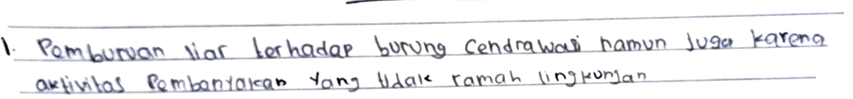 1. Pemburuan liar terhadap burung Cendrawasi namun juga karena
aktivitas Pembanyakan yang tidak ramah lingkungan